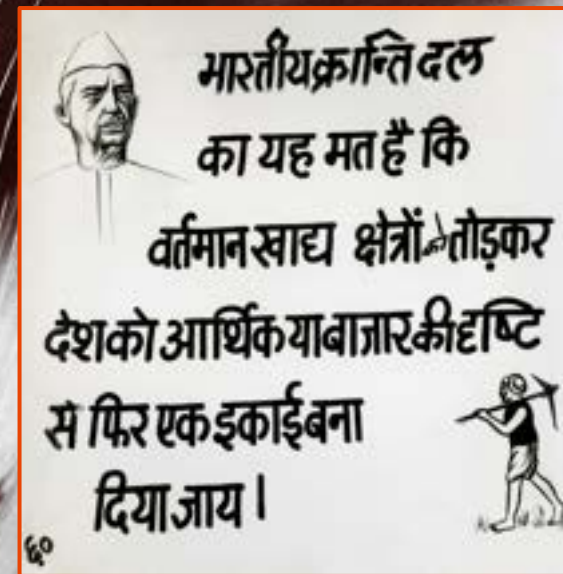 भारतीय क्रान्ति दल
का यह मत है कि
वर्तमान खाद्य क्षेत्रों को तोड़कर
देश को आर्थिक या बाजार की दृष्टि
से फिर एक इकाई बना
दिया जाय।
६०